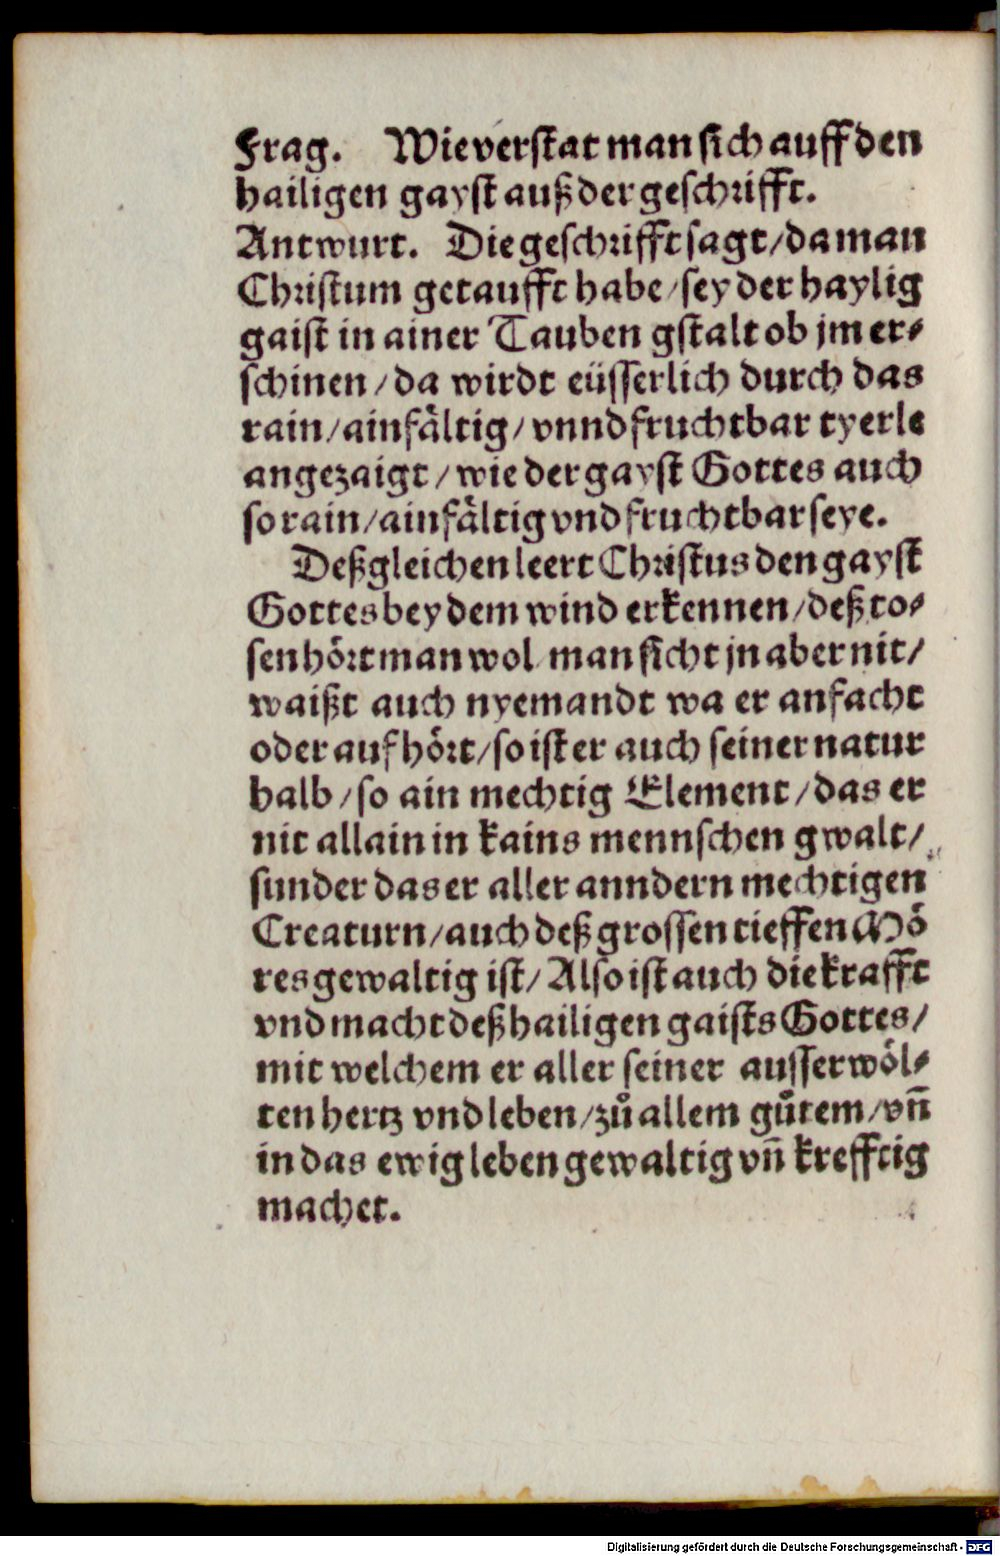 Frag. Wie verstat man sich auff den
hailigen gayst auß der geschrifft.
Antwurt. Die geschrifft sagt/da man
Christum getaufft habe/sey der haylig
gaist in ainer Tauben gstalt ob jm er⸗
schinen/da wirdt eüsserlich durch das
rain/ainfåltig/vnnd fruchtbar tyerle
angezaigt/wie der gayst Gottes auch
so rain/ainfåltig vnd fruchtbar seye.
Deßgleichen leert Christus den gayst
Gottes bey dem wind erkennen/deß to⸗
sen hoͤrt man wol man sicht jn aber nit/
waißt auch nyemandt wa er anfacht
oder aufhoͤrt/so ist er auch seiner natur
halb/so ain mechtig Element/das er
nit allain in kains mennschen gwalt/
sunder das er aller anndern mechtigen
Creaturn/auch deß grossen tieffen Moͤ
res gewaltig ist/Also ist auch die krafft
vnd macht deß hailigen gaists Gottes/
mit welchem er aller seiner ausserwoͤl⸗
ten hertz vnd leben/zů allem gůtem/vñ
in das ewig leben gewaltig vñ krefftig
machet.
Digitalisierung gefördert durch die Deutsche Forschungsgemeinschaft - DFG